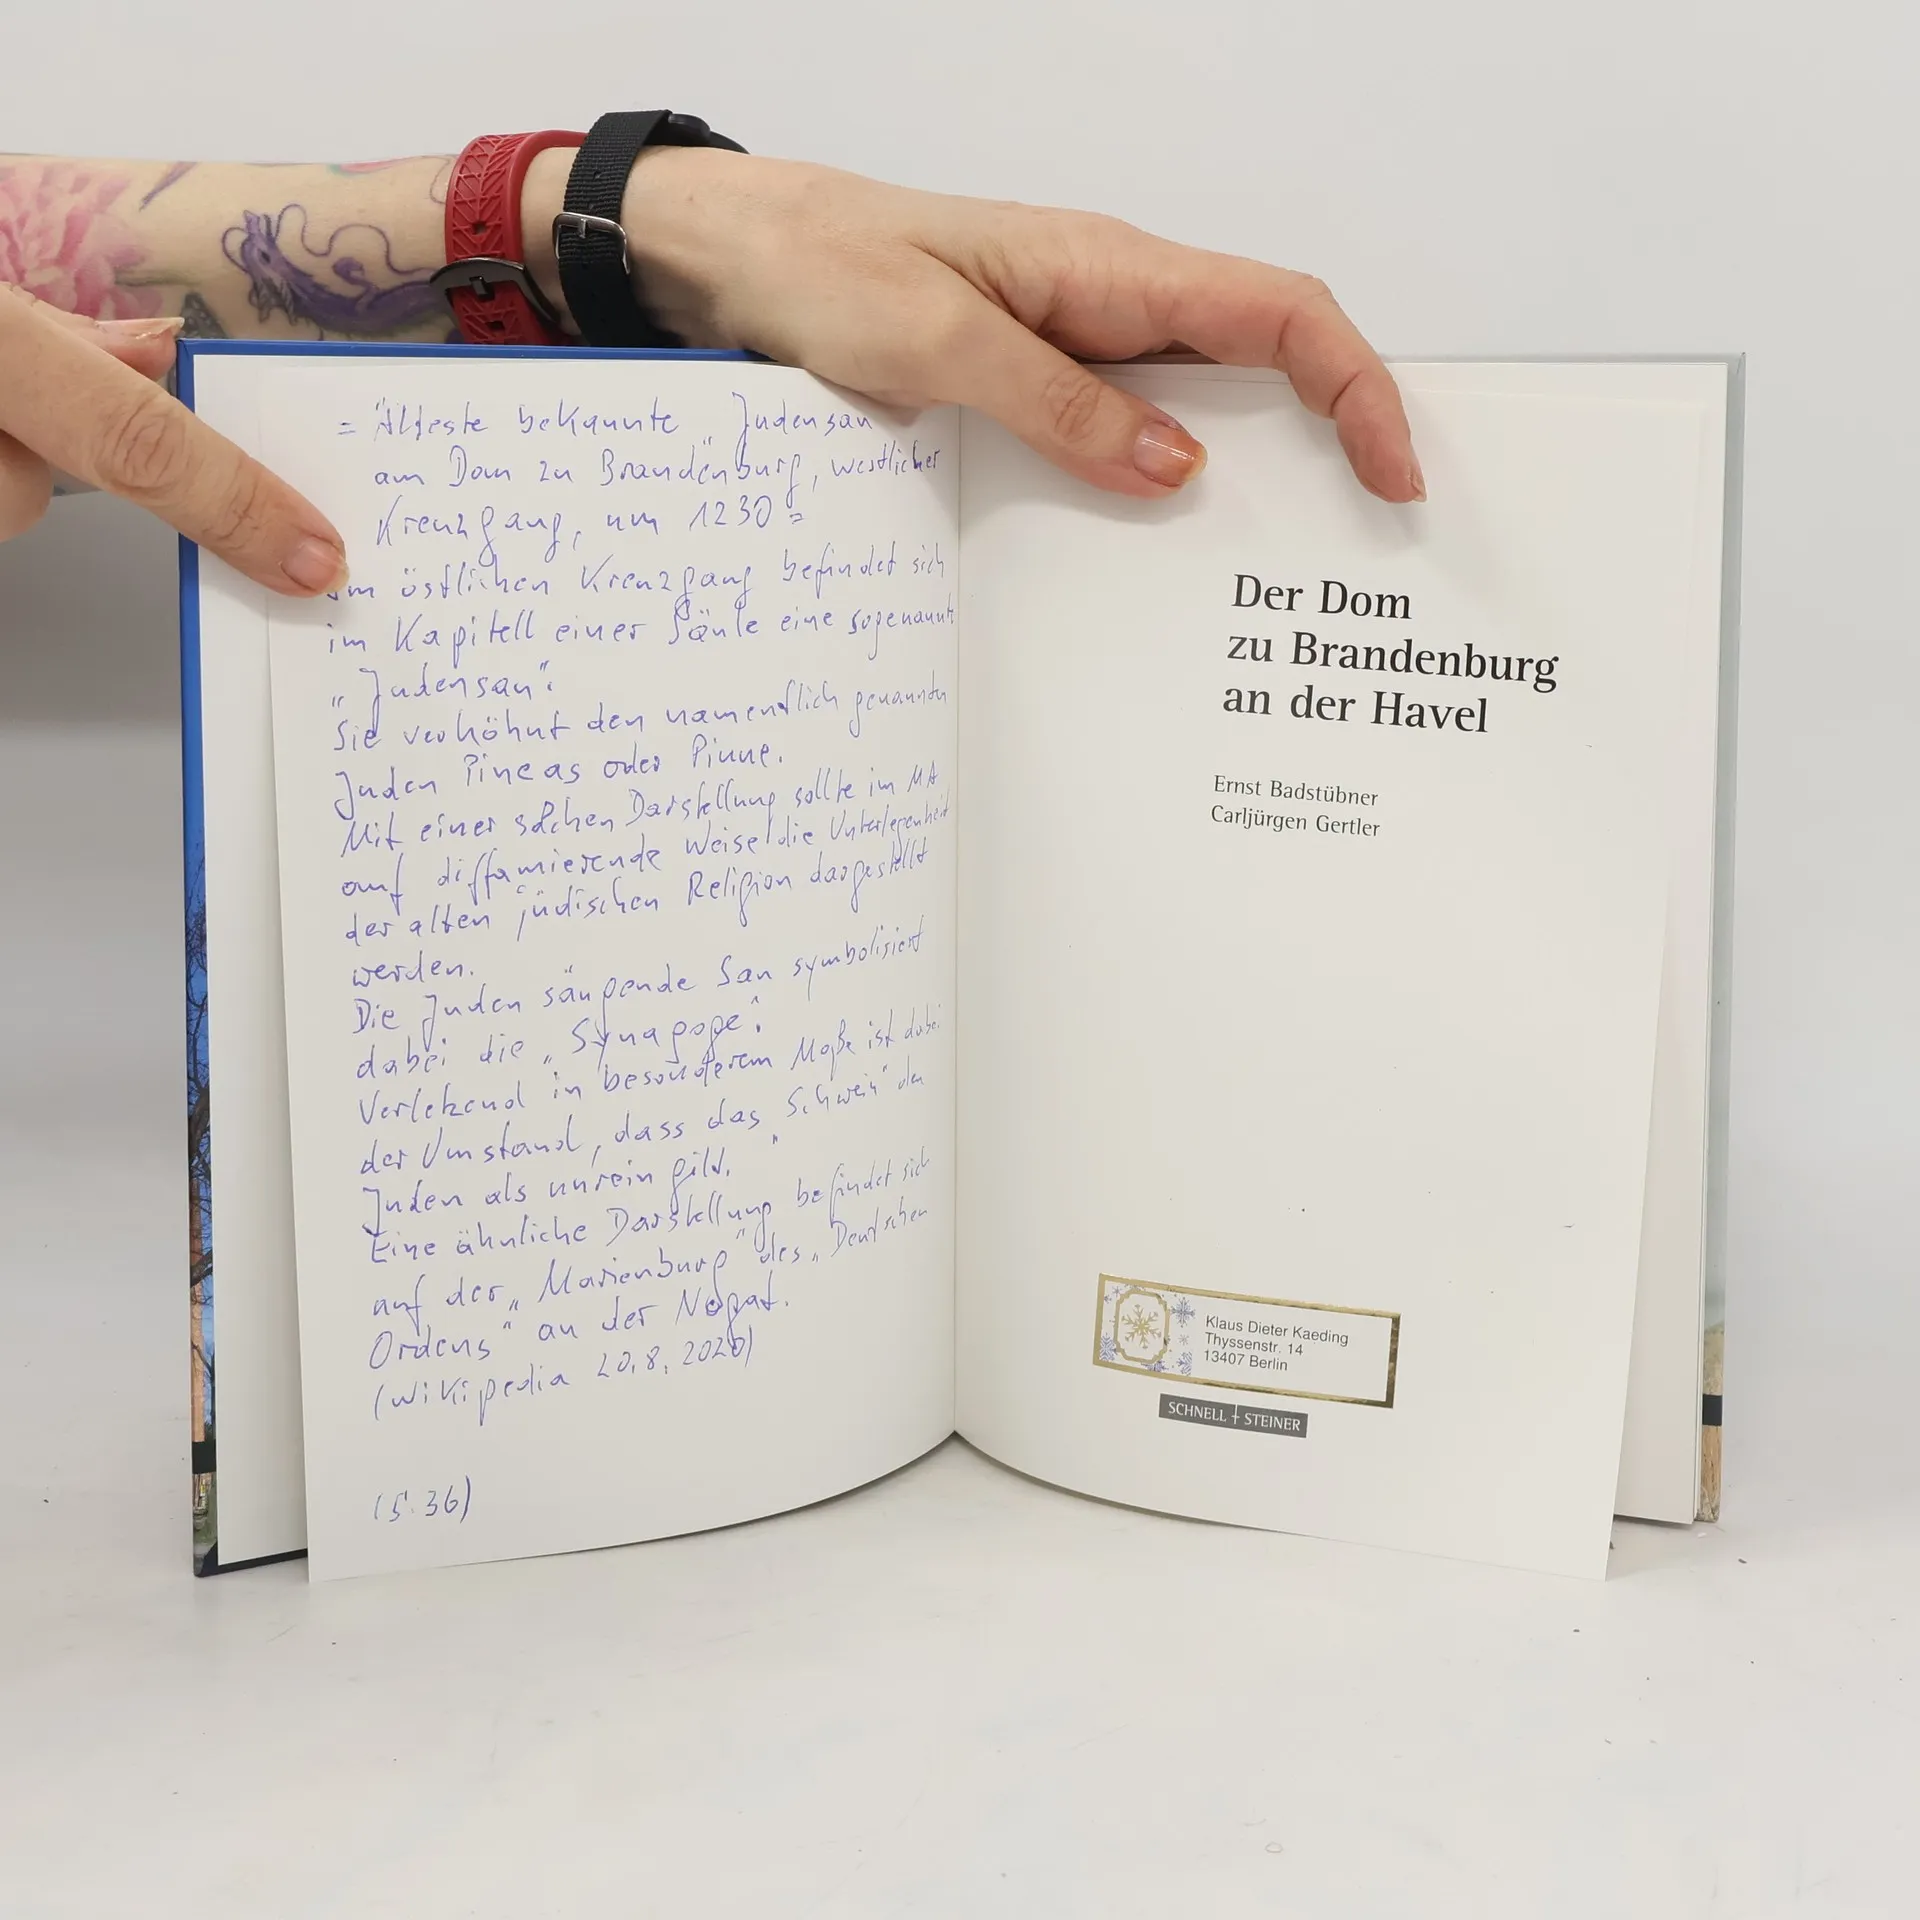 = Älteste bekannte „Judensau"
am Dom zu Brandenburg, westlicher
Kreuzgang, um 1230 =
Im östlichen Kreuzgang befindet sich
im Kapitell einer Säule eine sogenannte
„Judensau".
Sie verhöhnt den namentlich genannten
Juden Pineas oder Pinne.
Mit einer solchen Darstellung sollte im MA
auf diffamierende Weise die Unterlegenheit
der alten jüdischen Religion dargestellt
werden.
Die Juden säugende Sau symbolisiert
dabei die „Synagoge".
Verletzend in besonderem Maße ist dabei
der Umstand, dass das „Schwein" den
Juden als unrein gilt.
Eine ähnliche Darstellung befindet sich
auf der „Marienburg" des „Deutschen
Ordens" an der Nogat.
(Wikipedia 20.8.2020)
(S. 36)
Der Dom
zu Brandenburg
an der Havel
Ernst Badstübner
Carljürgen Gertler
Klaus Dieter Kaeding
Thyssenstr. 14
13407 Berlin
SCHNELL + STEINER